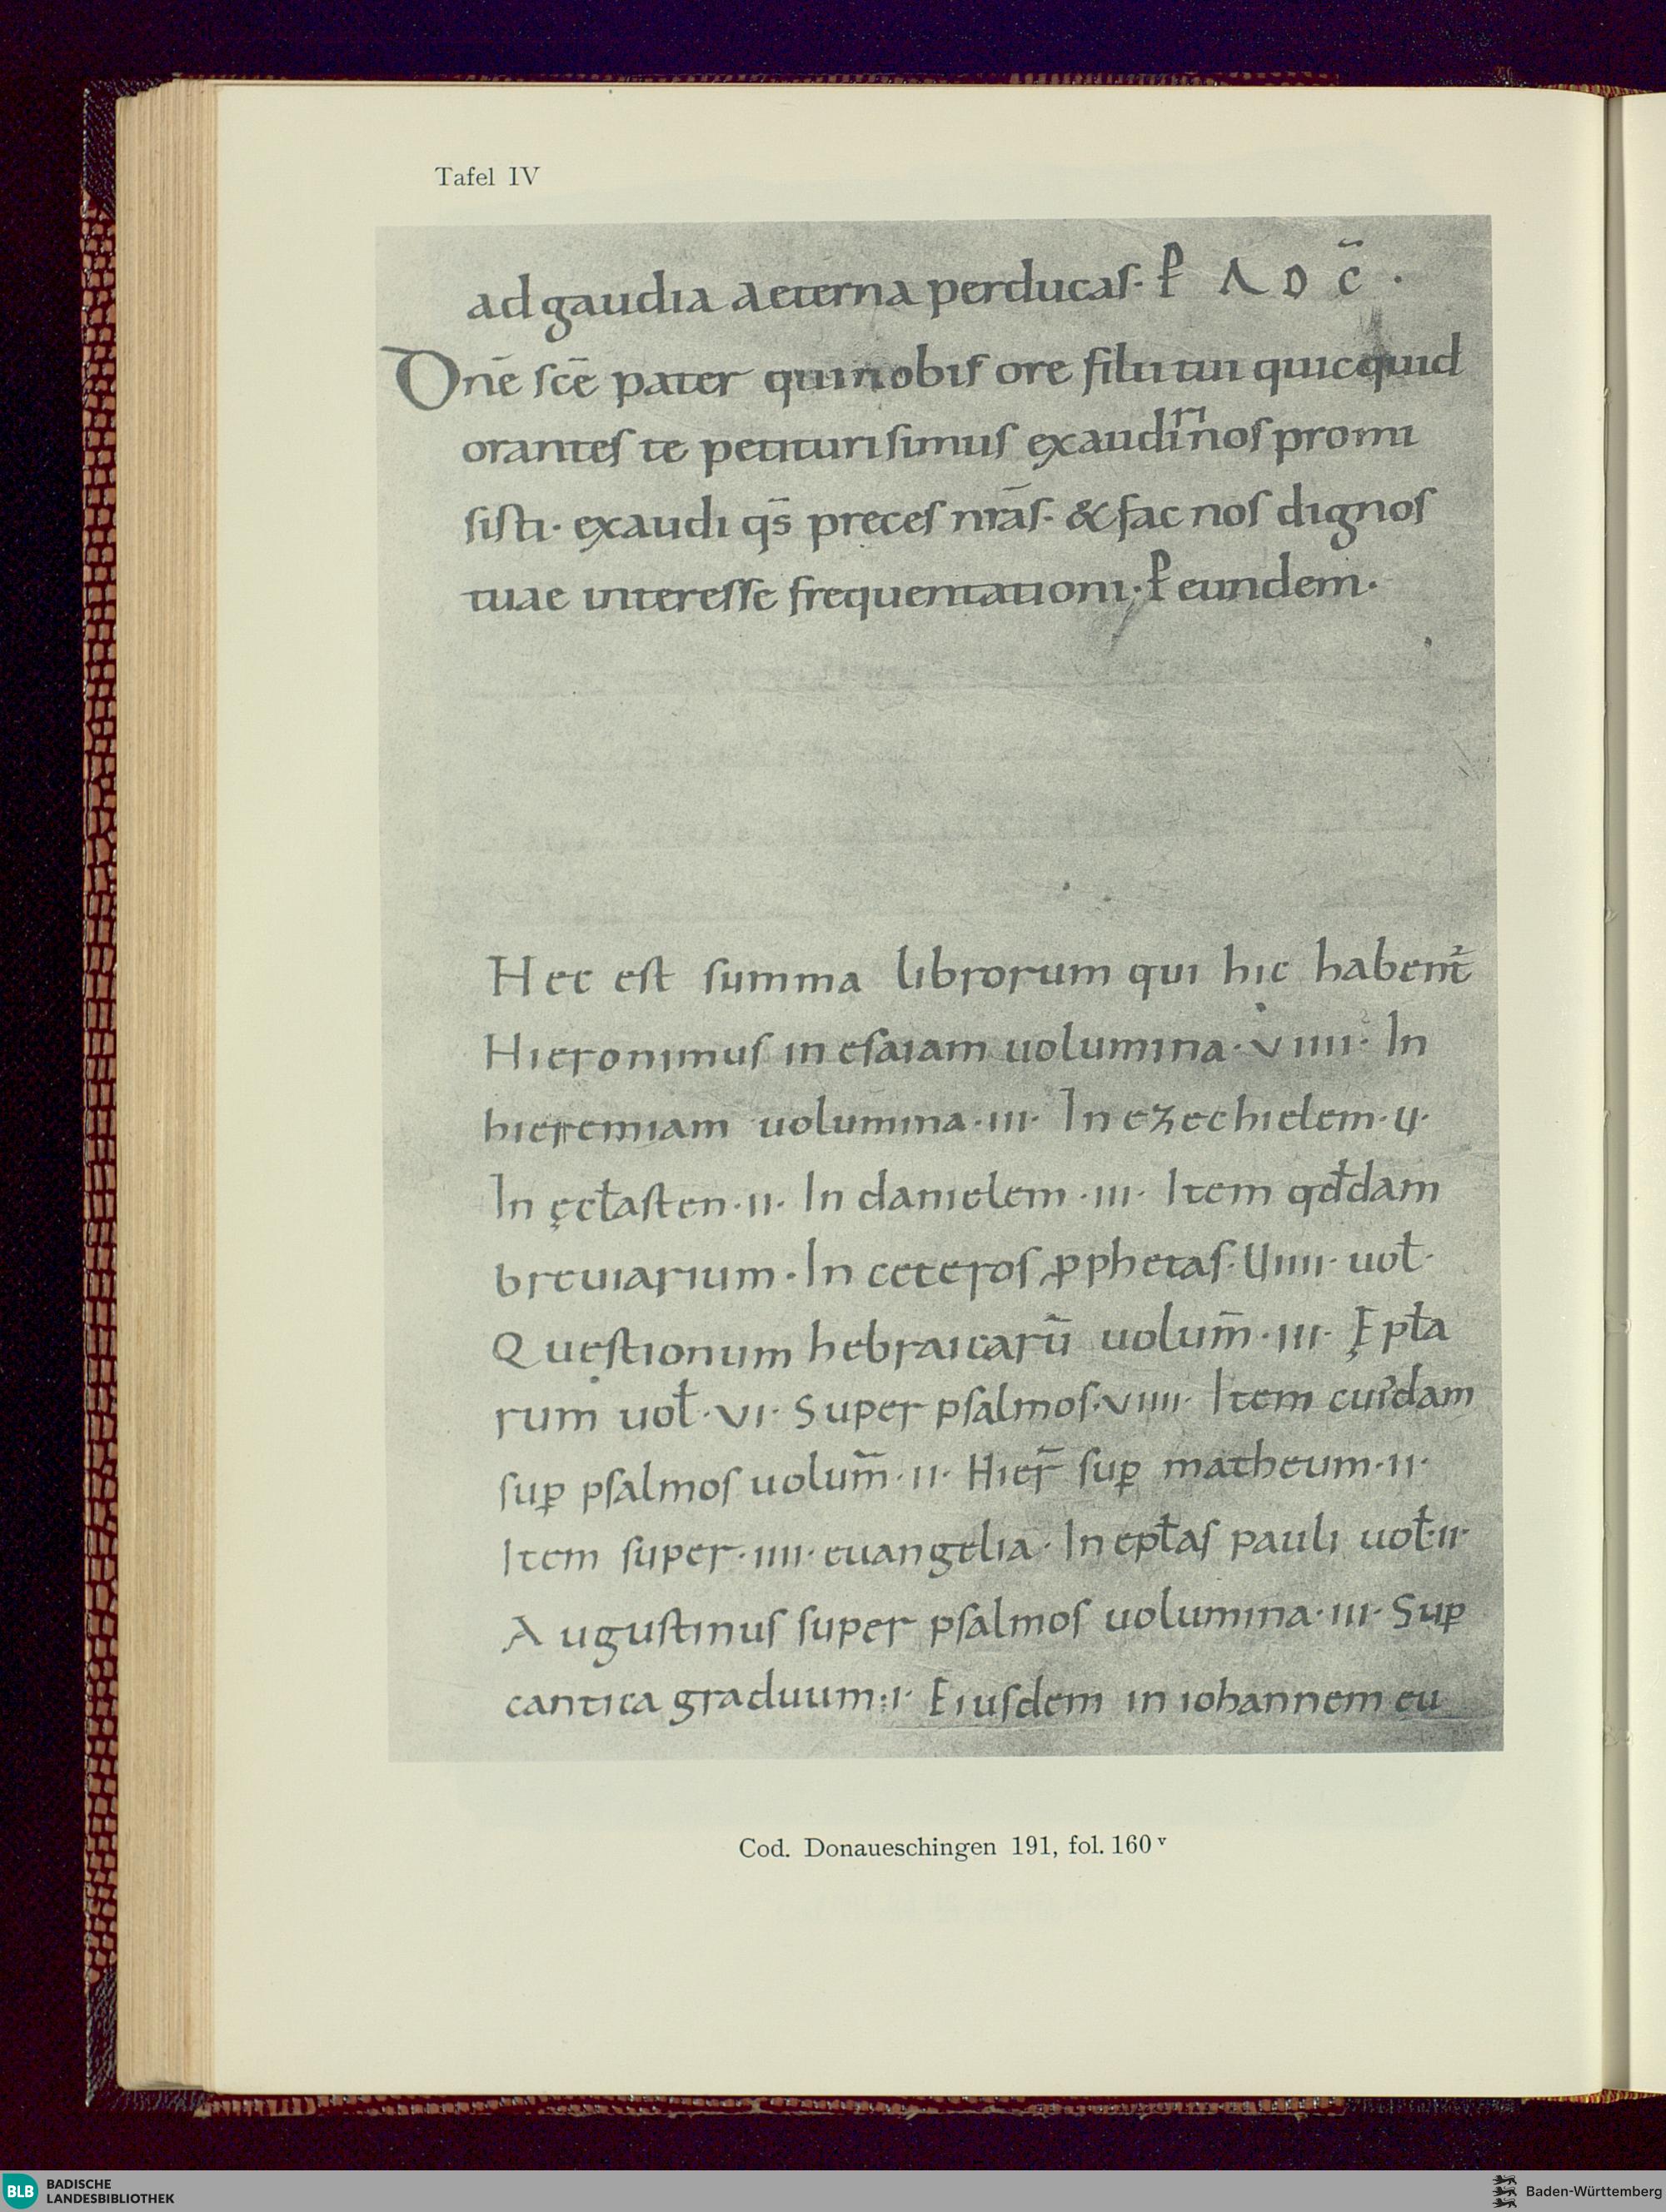 Tafel IV
ad gaudia aeterna perducas· ꝑ Λ D c̄ ·
Dn̄e sc̄e pater qui nobis ore filii tui quicquid
orantes te petituri simus exaudiri nos promi
sisti· exaudi qs̄ preces nr̄as· & fac nos dignos
tuae interesse frequentationi· ꝑ eundem·
Hec est summa librorum qui hic habent̄
Hieronimus in esaiam uolumina· VIIII· In
hieremiam uolumina· III· In ezechielem· II·
In ęcłasten· II· In danielem· III· Item qđdam
breuiarium· In ceteros ꝓphetas· UIIII· uoł·
Questionum hebraicarū uolum̄· III· Ępła
rum uoł· VI· Super psalmos· VIIII· Item cui'dam
suꝑ psalmos uolum̄· II· Hier̄ suꝑ matheum· II·
Item super· IIII· euangelia· In epłas pauli uoł· II·
Augustinus super psalmos uolumina· III· Suꝑ
cantica graduum: I· Eiusdem in iohannem eu
Cod. Donaueschingen 191, fol. 160ᵛ
BLB BADISCHE
LANDESBIBLIOTHEK
Baden-Württemberg